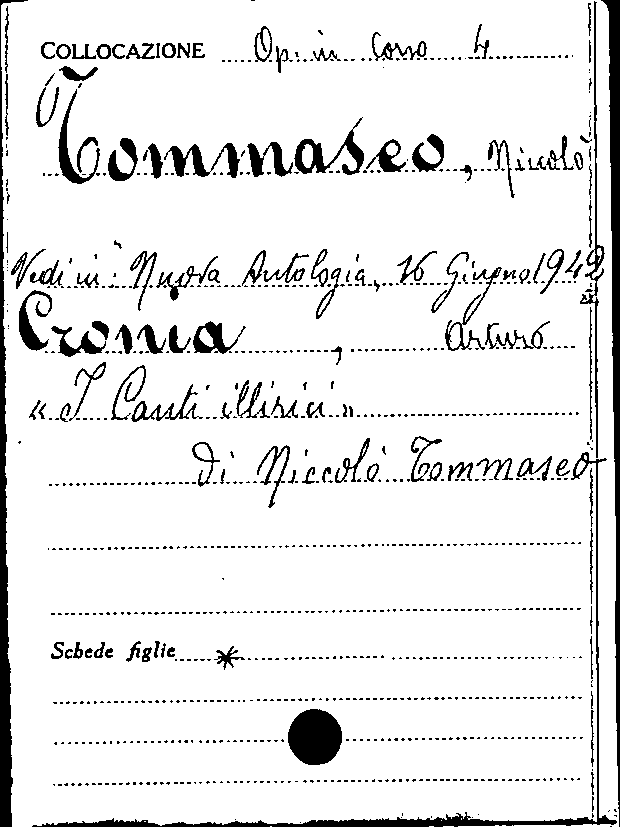 COLLOCAZIONE Op. in Corso 4
Tommaseo, Niccolò
Vedi in: "Nuova Antologia, 16 Giugno 1942
Cronia, Arturo
« I Canti illirici »
di Niccolò Tommaseo
Schede figlie *